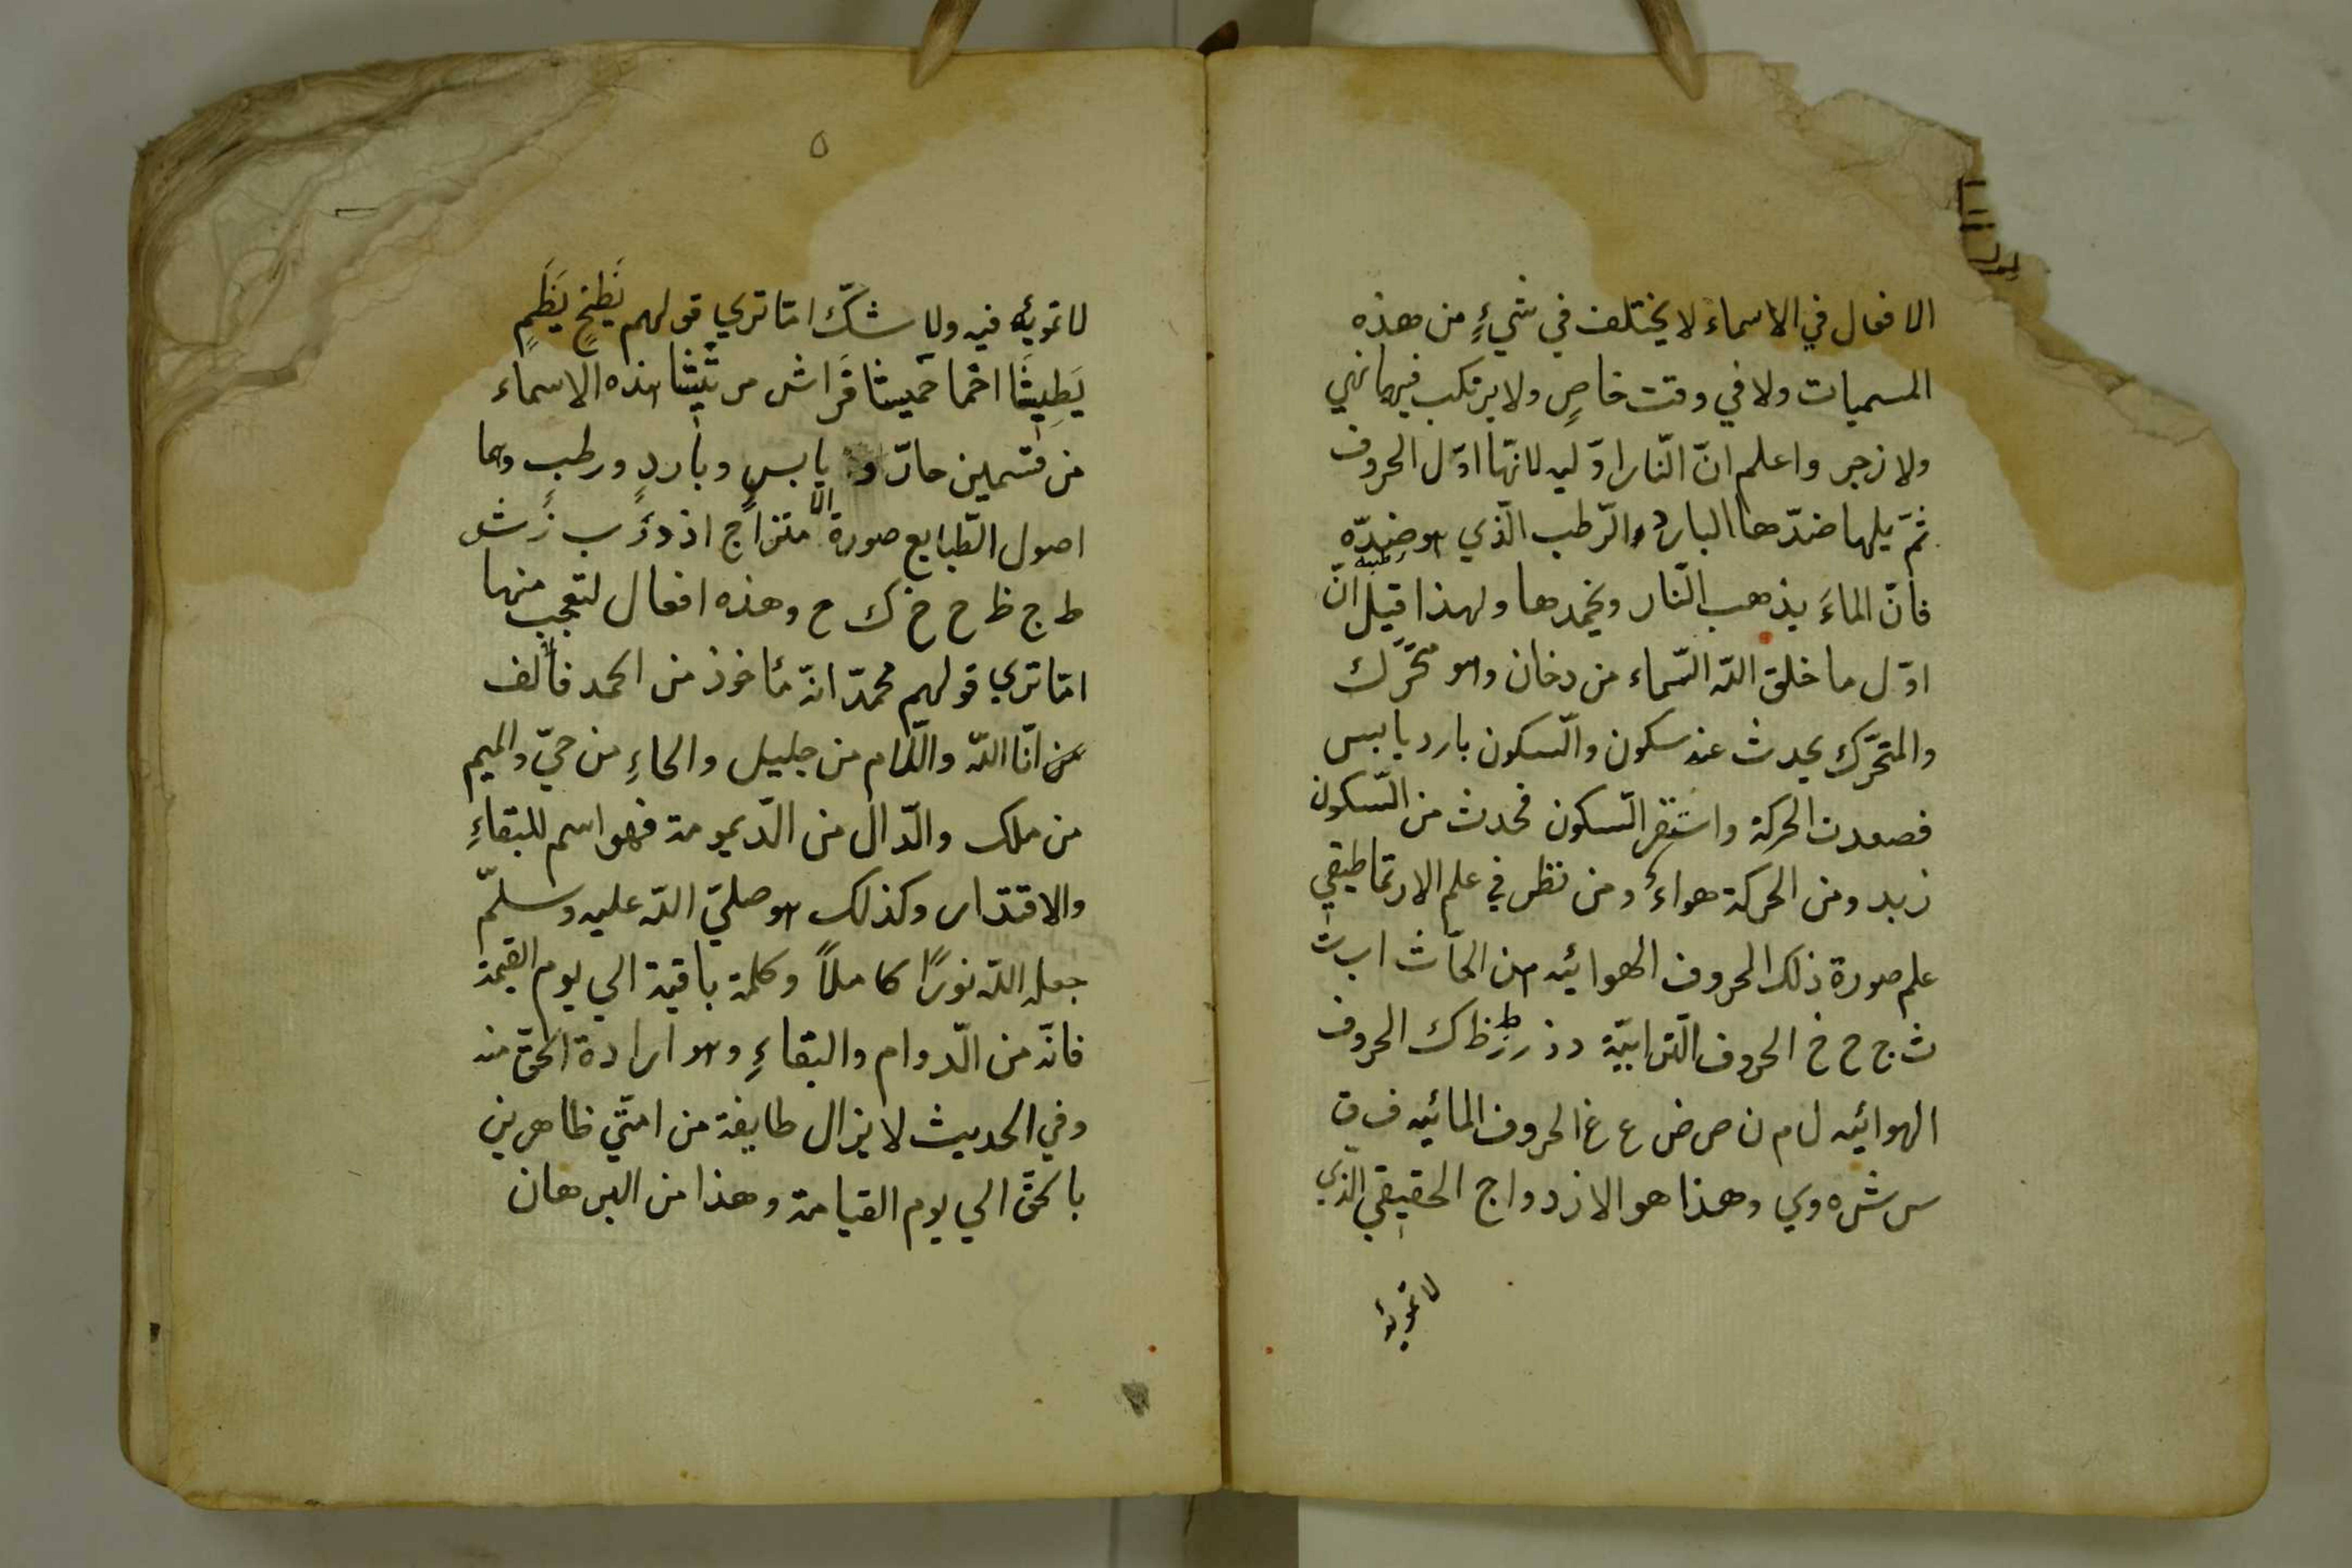 الافعال في الاسماء لا يختلف في شيءٍ من هذه
المسميات ولا في وقت خاصٍ ولا يرتكب فيها نهي
ولا زجر واعلم انّ النّار اوّليه لانّها اوّل الحروف
ثمّ يليها ضدّها البارد والرّطب الّذي هو ضدّه
فانّ الماءَ يذهب النّار ويخمدها ولهذا قيل انّ
اوّل ما خلق اللّه السّماء من دخان وهو متحرّك
والمتحرّك يحدث عنه سكون والسّكون بارد يابس
فصعدت الحركة واستقر السّكون فحدث من السّكون
زبد ومن الحركة هواءٌ ومن نظر في علم الارتماطيقي
علم صورة ذلك الحروف الهوائيه من ا ب ت
ث ج ح خ الحروف التّرابيّة د ذ ر ز ط ظ ك الحروف
الهوائيه ل م ن ص ض ع غ الحروف المائيه ف ق
س ش ه و ي وهذا هو الازدواج الحقيقي الذي
لا تمويه
٥
لا تمويه فيه ولا شكّ امّا تري قولهم
هذه الاسماء
من قسمين حارّ و يابسٍ وباردٍ ورطبٍ وهما
اصول الطّبايع صورة الامتزاج ا ذ د ر ب ز ش
ط ج ظ ح خ ك ع وهذه افعال لتعجب منها
امّا تري قولهم محمدّ انّه مأخوذ من الحمد فالالف
من انّا اللّه واللّام من جليل والحاءِ من حيّ والميم
من ملك والدّال من الدّيمومة فهو اسم للبقاءِ
والاقتدار وكذلك هو صليّ اللّه عليه وسلمّ
جعله اللّه نورًا كاملاً وكلمة باقية الي يوم القيمة
فانّه من الدّوام والبقاءِ وهو ارادة الحقّ منه
وفي الحديث لا يزال طايفة من امتّي ظاهرين
بالحقّ الي يوم القيامة وهذا من البرهان